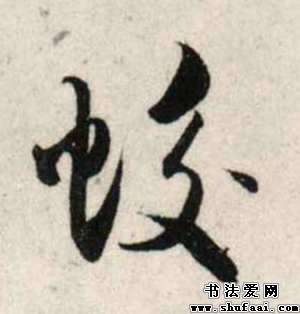 蛟
书法爱网
www.shufaai.com